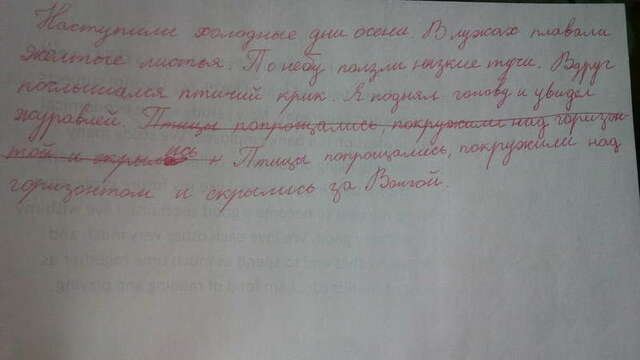 Наступили холодные дни осени. В лужах плавали
желтые листья. По небу ползли низкие тучи. Вдруг
послышался птичий крик. Я поднял голову и увидел
журавлей. Птицы попрощались, покружили над горизон-
том и скрылись Птицы попрощались, покружили над
горизонтом и скрылись за Волгой.